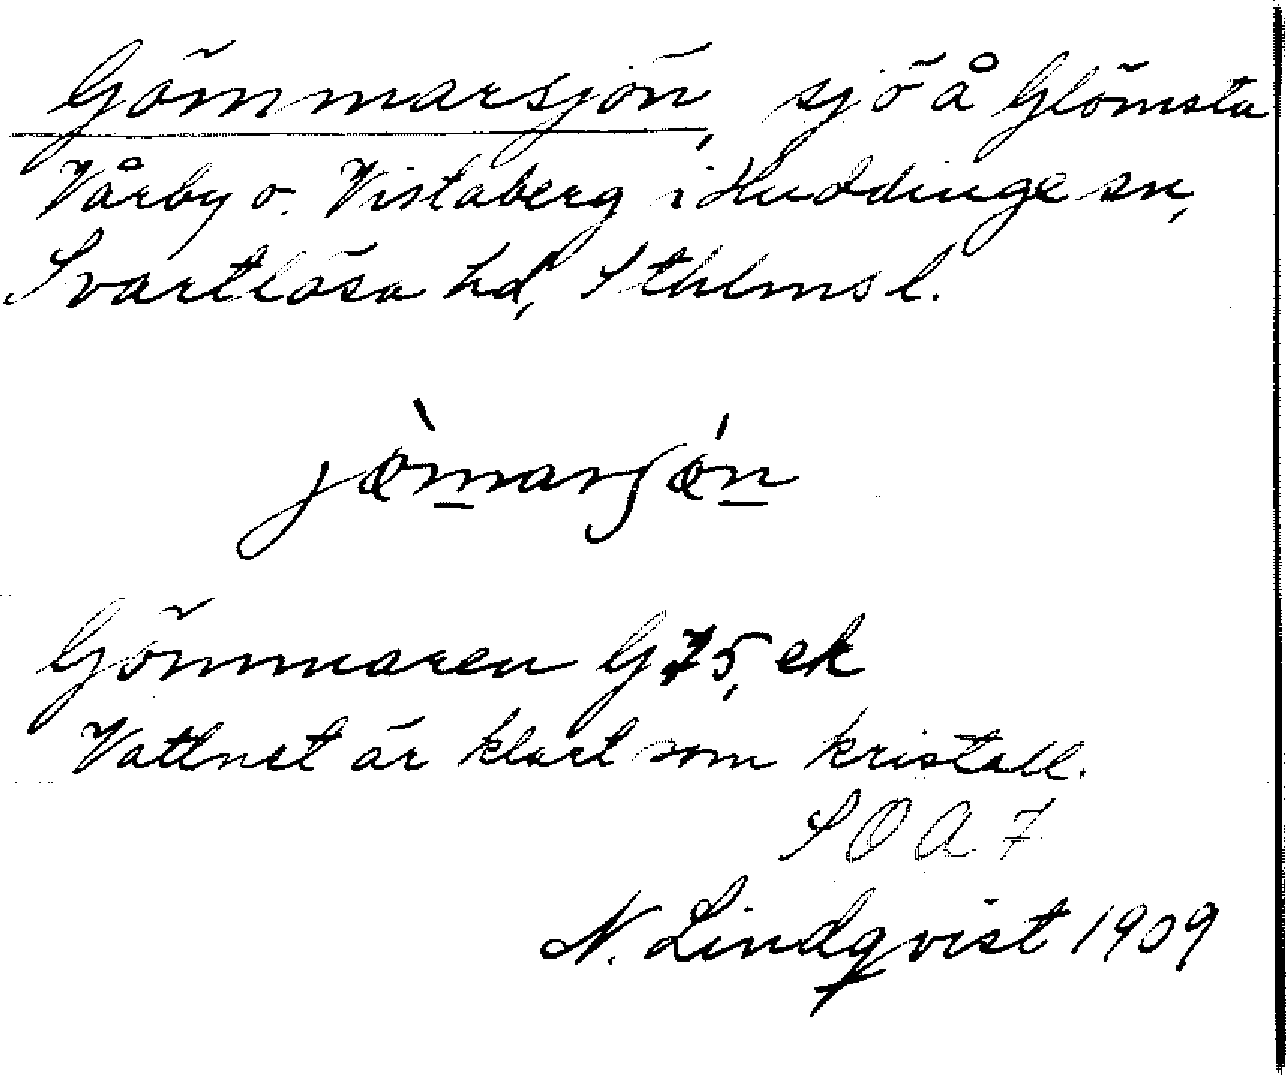 Gömmarsjön, sjö å Glömsta
Vårby o. Vistaberg i Huddinge sn,
Svartlösa hd, Sthlms l.
Gömmaren G 75, ek
Vattnet är klart som kristall.
S O A 7
N. Lindqvist 1909